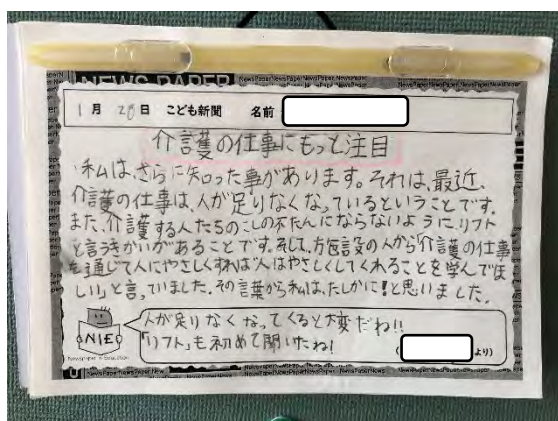 NEWS PAPER
1月28日 こども新聞 名前
介護の仕事にもっと注目
私は、さらに知った事があります。それは、最近、
介護の仕事は、人が足りなくなっているということです。
また、介護する人たちのこしの不たんにならないように、リフト
と言うきかいがあることです。そして、施設の人から「介護の仕事
を通じて人にやさしくすれば人はやさしくしてくれることを学んでほ
しい」と言っていました。その言葉から私は、たしかに!と思いました。
人が足りなくなってくると大変だね!!
「リフト」も初めて聞いたね!
(より)
NIE
Newspaper in Education